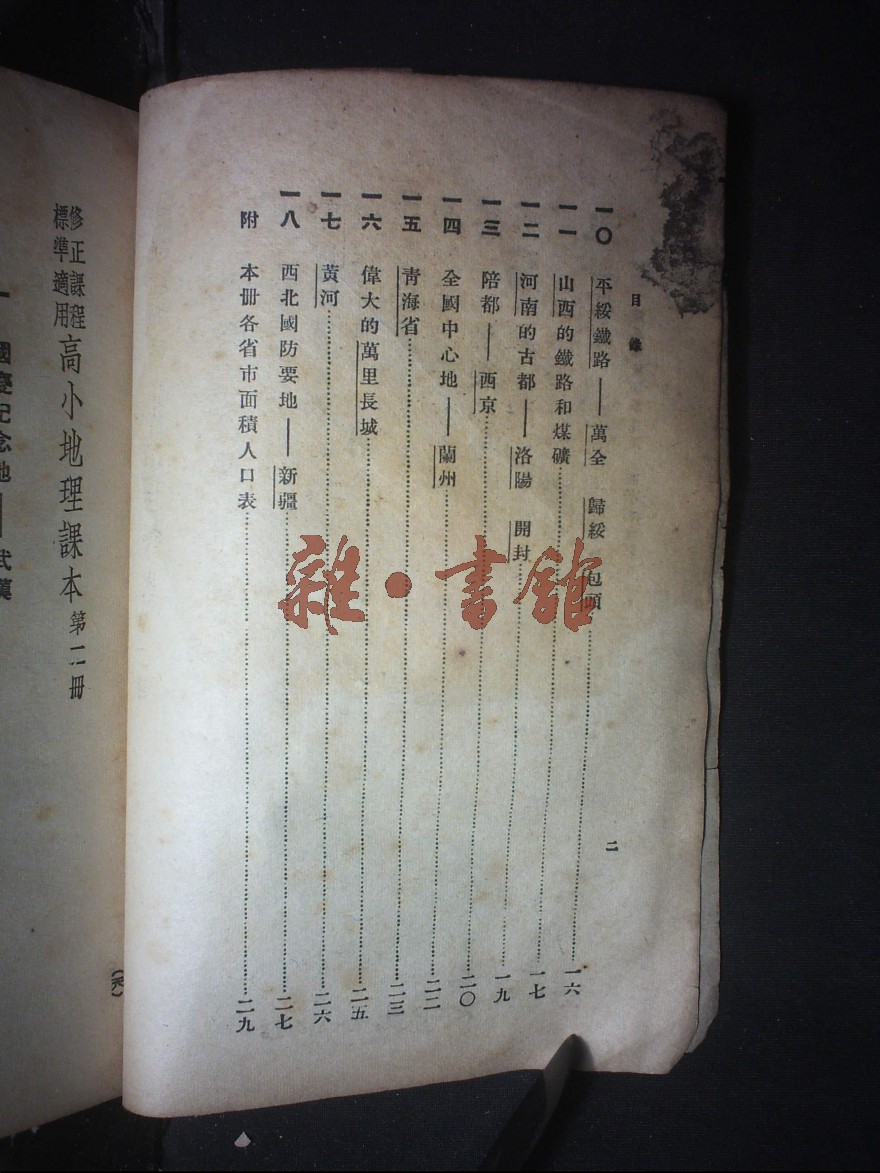 目錄
二
一〇 平綏鐵路——萬全 歸綏 包頭 一六
一一 山西的鐵路和煤礦 一七
一二 河南的古都——洛陽 開封 一九
一三 陪都——西京 二〇
一四 全國中心地——蘭州 二二
一五 青海省 二三
一六 偉大的萬里長城 二五
一七 黃河 二六
一八 西北國防要地——新疆 二七
附 本册各省市面積人口表 二九
雜·書館
修正課程
標準適用
高小地理課本 第二册
一 國慶紀念地——武漢